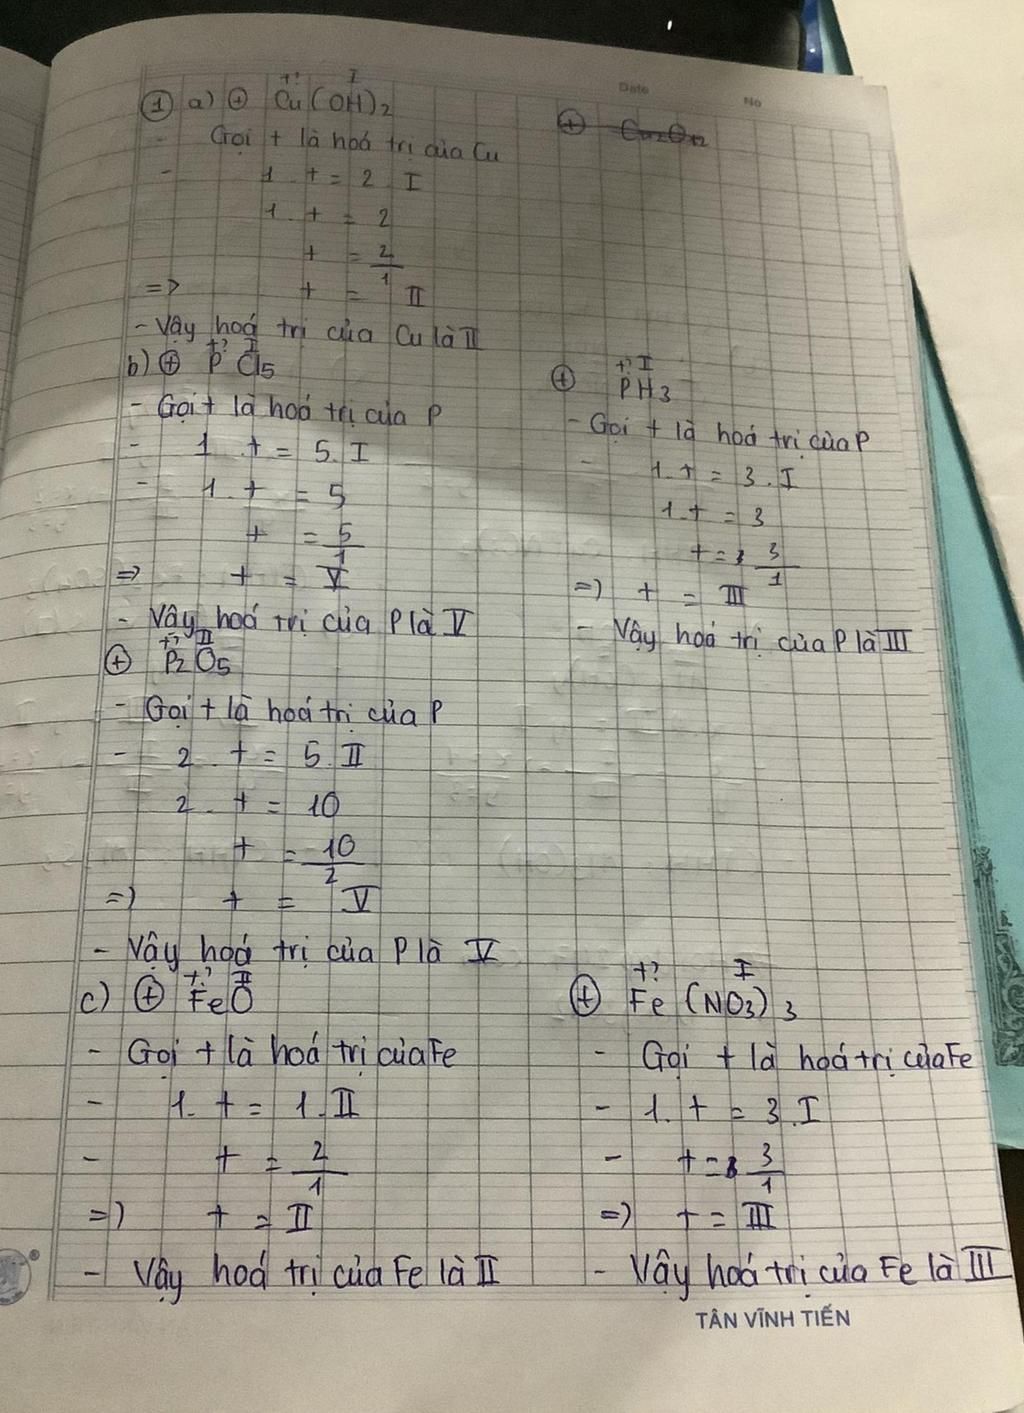 Date
No
① a) ⊕ Cu (OH)2
+? I
- Gọi + là hoá trị của Cu
- 1 . + = 2 . I
1 . + = 2
+ = 2/1
=> + = II
- Vậy hoá trị của Cu là II
⊕
b) ⊕ P Cl5
+? I
- Gọi + là hoá trị của P
- 1 . + = 5 . I
- 1 . + = 5
+ = 5/1
=> + = V
- Vậy hoá trị của P là V
⊕ PH3
+? I
- Gọi + là hoá trị của P
- 1 . + = 3 . I
1 . + = 3
+ = 3/1
=) + = III
- Vậy hoá trị của P là III
⊕ P2 O5
+? II
- Gọi + là hoá trị của P
- 2 . + = 5 . II
2 . + = 10
+ = 10/2
=) + = V
- Vậy hoá trị của P là V
c) ⊕ FeO
+? II
- Gọi + là hoá trị của Fe
- 1 . + = 1 . II
- + = 2/1
=) + = II
- Vậy hoá trị của Fe là II
⊕ Fe (NO3)3
+? I
- Gọi + là hoá trị của Fe
- 1 . + = 3 . I
- + = 3/1
=) + = III
- Vậy hoá trị của Fe là III
TÂN VĨNH TIẾN